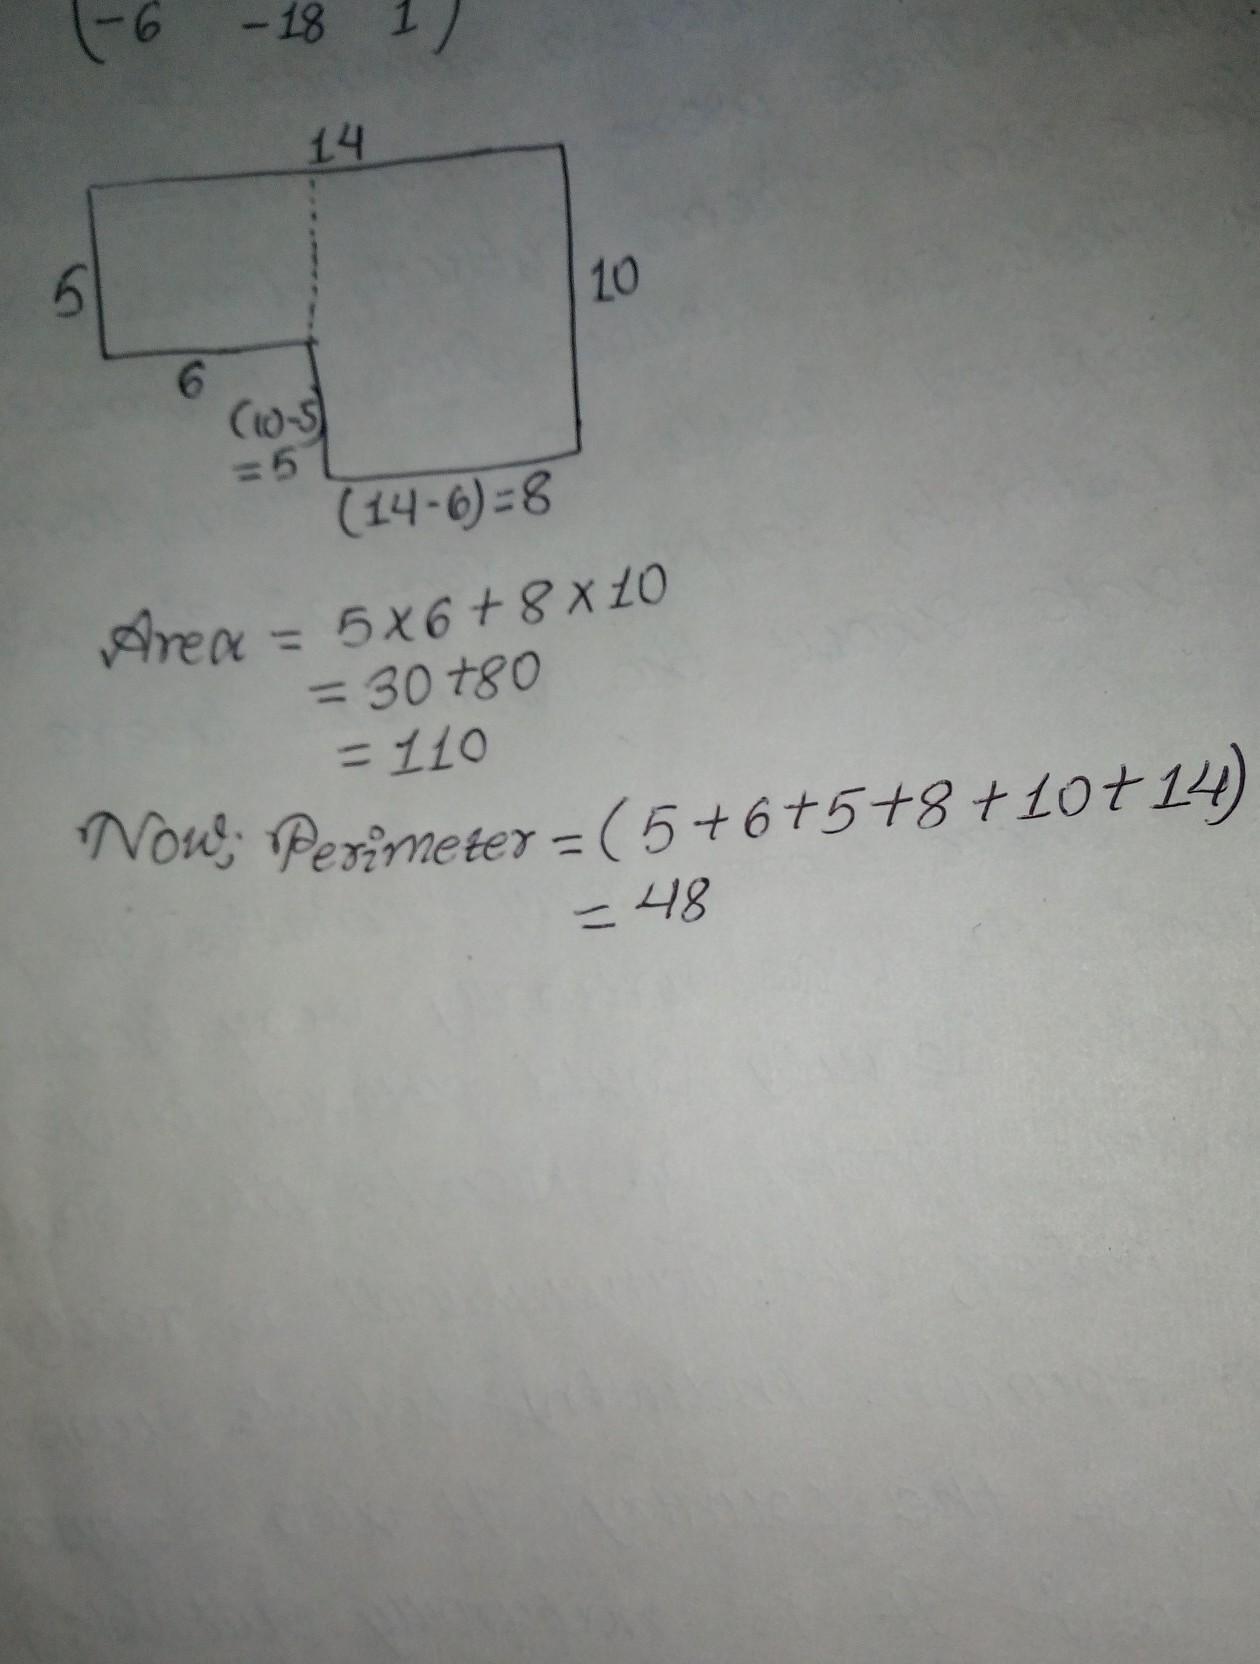 (-6 -18 1)
14
5
10
6
(10-5)
=5
(14-6)=8
Area = 5×6+8×10
=30+80
=110
Now; Perimeter =(5+6+5+8+10+14)
=48